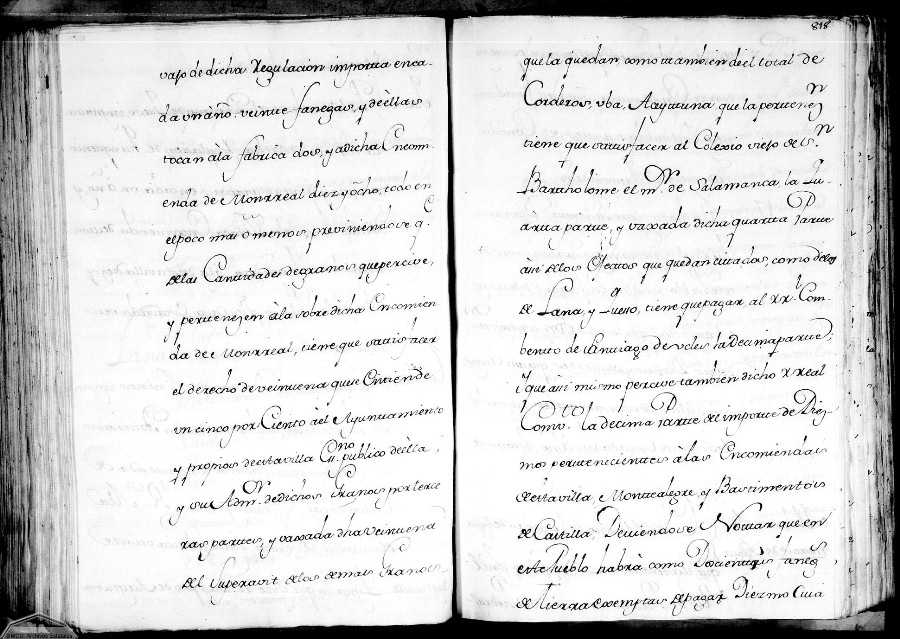 vajo de dicha Regulacion importta en ca-
da un año, veintte fanegas, y de èllas
tocan à la fabrica dos, y a dicha Encom-
enda de Monrreal diez y ocho, todo en
el poco mas ò menos, previniendose q.e
de las Canttidades de granos que percive,
y perttenezen à la sobre dicha Encomien
da de Monrreal, tiene que sattisfacer
el derecho de veinttena que se Enttiende
un cinco por Ciento àel Ayunttamiento
y propios de esta villa, Ess.no publico de èlla,
y su Adm.or de dichos Granos por terce
ras parttes, y vaxada dha veinttena
del superavit de los demas Granos
818
que la quedan, como ttambien de el total de
Corderos, vba, Azaytuna que la perttenez.n
tiene que sattisfacer al Colexio viejo de S.n
Bartholome el m.or de Salamanca la Qu-
àrtta partte, y vaxada dicha quartta Partte
asi de los Efecttos que quedan cittados, como de los
de Lana, y Queso, tiene que pagar al R.l Com-
bento de Santtiago de Vcles la Decima partte;
y que asi mismo percive tambien dicho R. real
Comv.to la decima Partte del importe de Diez-
mos perttenecienttes à las Encomiendas
de esta villa, Montealegre, y Bastimenttos
de Casttilla; Deviendose Nottar que en
estte Pueblo habrà como Doscienttas faneg.s
de Tierra exempttas de pagar Diezmo Cuia